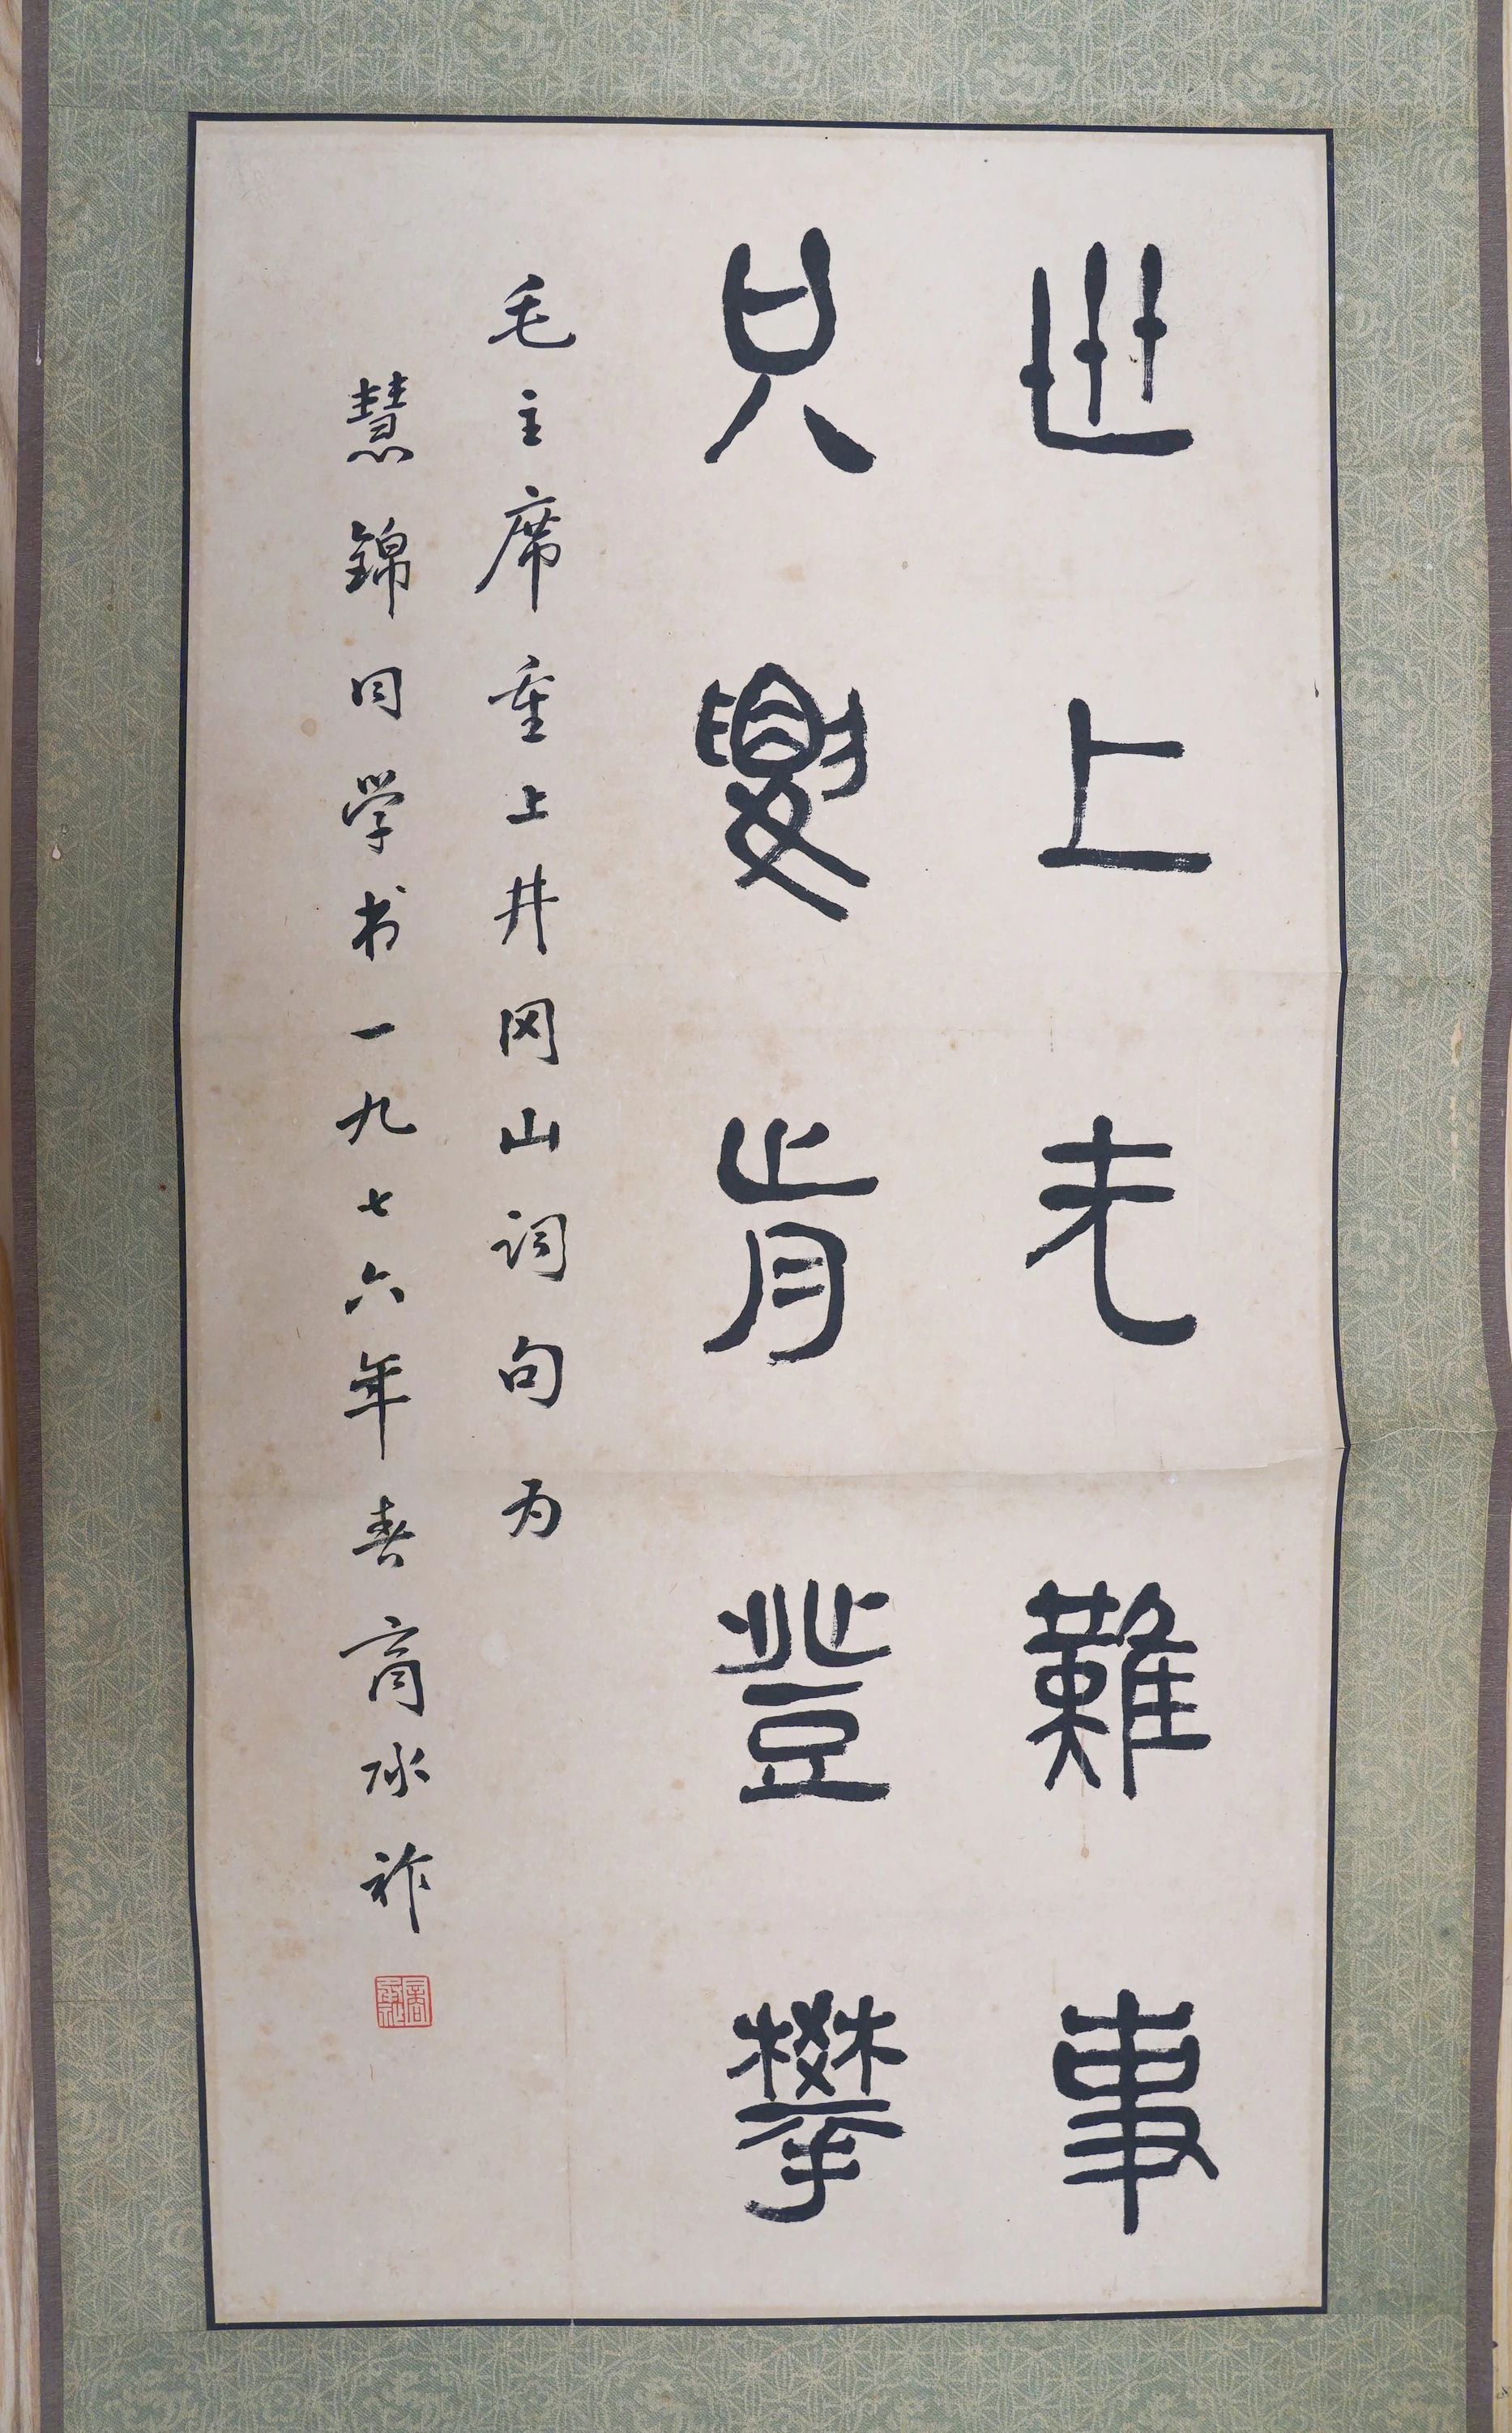 世上无難事
只要肯登攀
毛主席重上井冈山词句为
慧錦同学书一九七六年春商承祚
商承祚